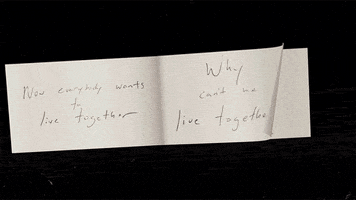 Now everybody wants
to
live together
Why
can't we
live together